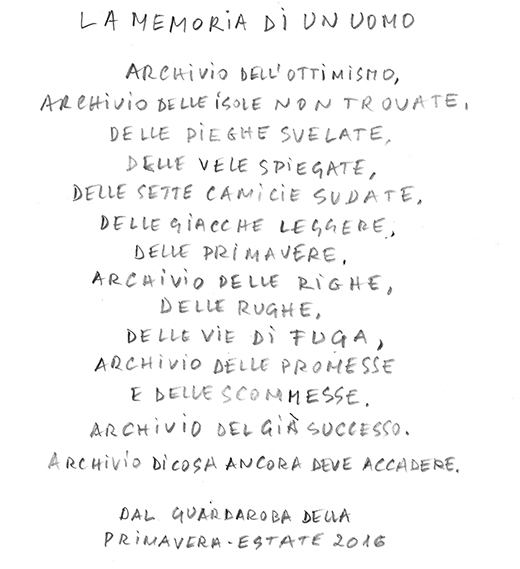 LA MEMORIA DI UN UOMO
ARCHIVIO DELL'OTTIMISMO,
ARCHIVIO DELLE ISOLE NON TROVATE,
DELLE PIEGHE SVELATE,
DELLE VELE SPIEGATE,
DELLE SETTE CAMICIE SUDATE,
DELLE GIACCHE LEGGERE,
DELLE PRIMAVERE,
ARCHIVIO DELLE RIGHE,
DELLE RUGHE,
DELLE VIE DI FUGA,
ARCHIVIO DELLE PROMESSE
E DELLE SCOMMESSE.
ARCHIVIO DEL GIÀ SUCCESSO.
ARCHIVIO DI COSA ANCORA DEVE ACCADERE.
DAL GUARDAROBA DELLA
PRIMAVERA-ESTATE 2016